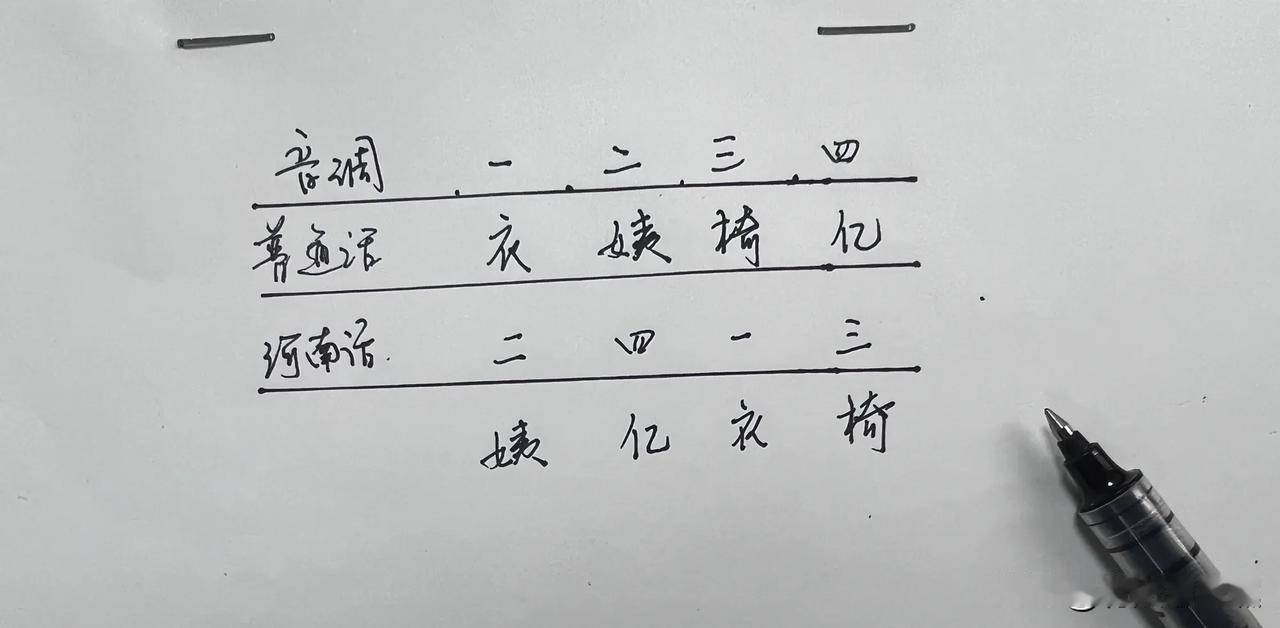 音调 一 二 三 四
普通话 衣 姨 椅 亿
河南话 二 四 一 三
姨 亿 衣 椅